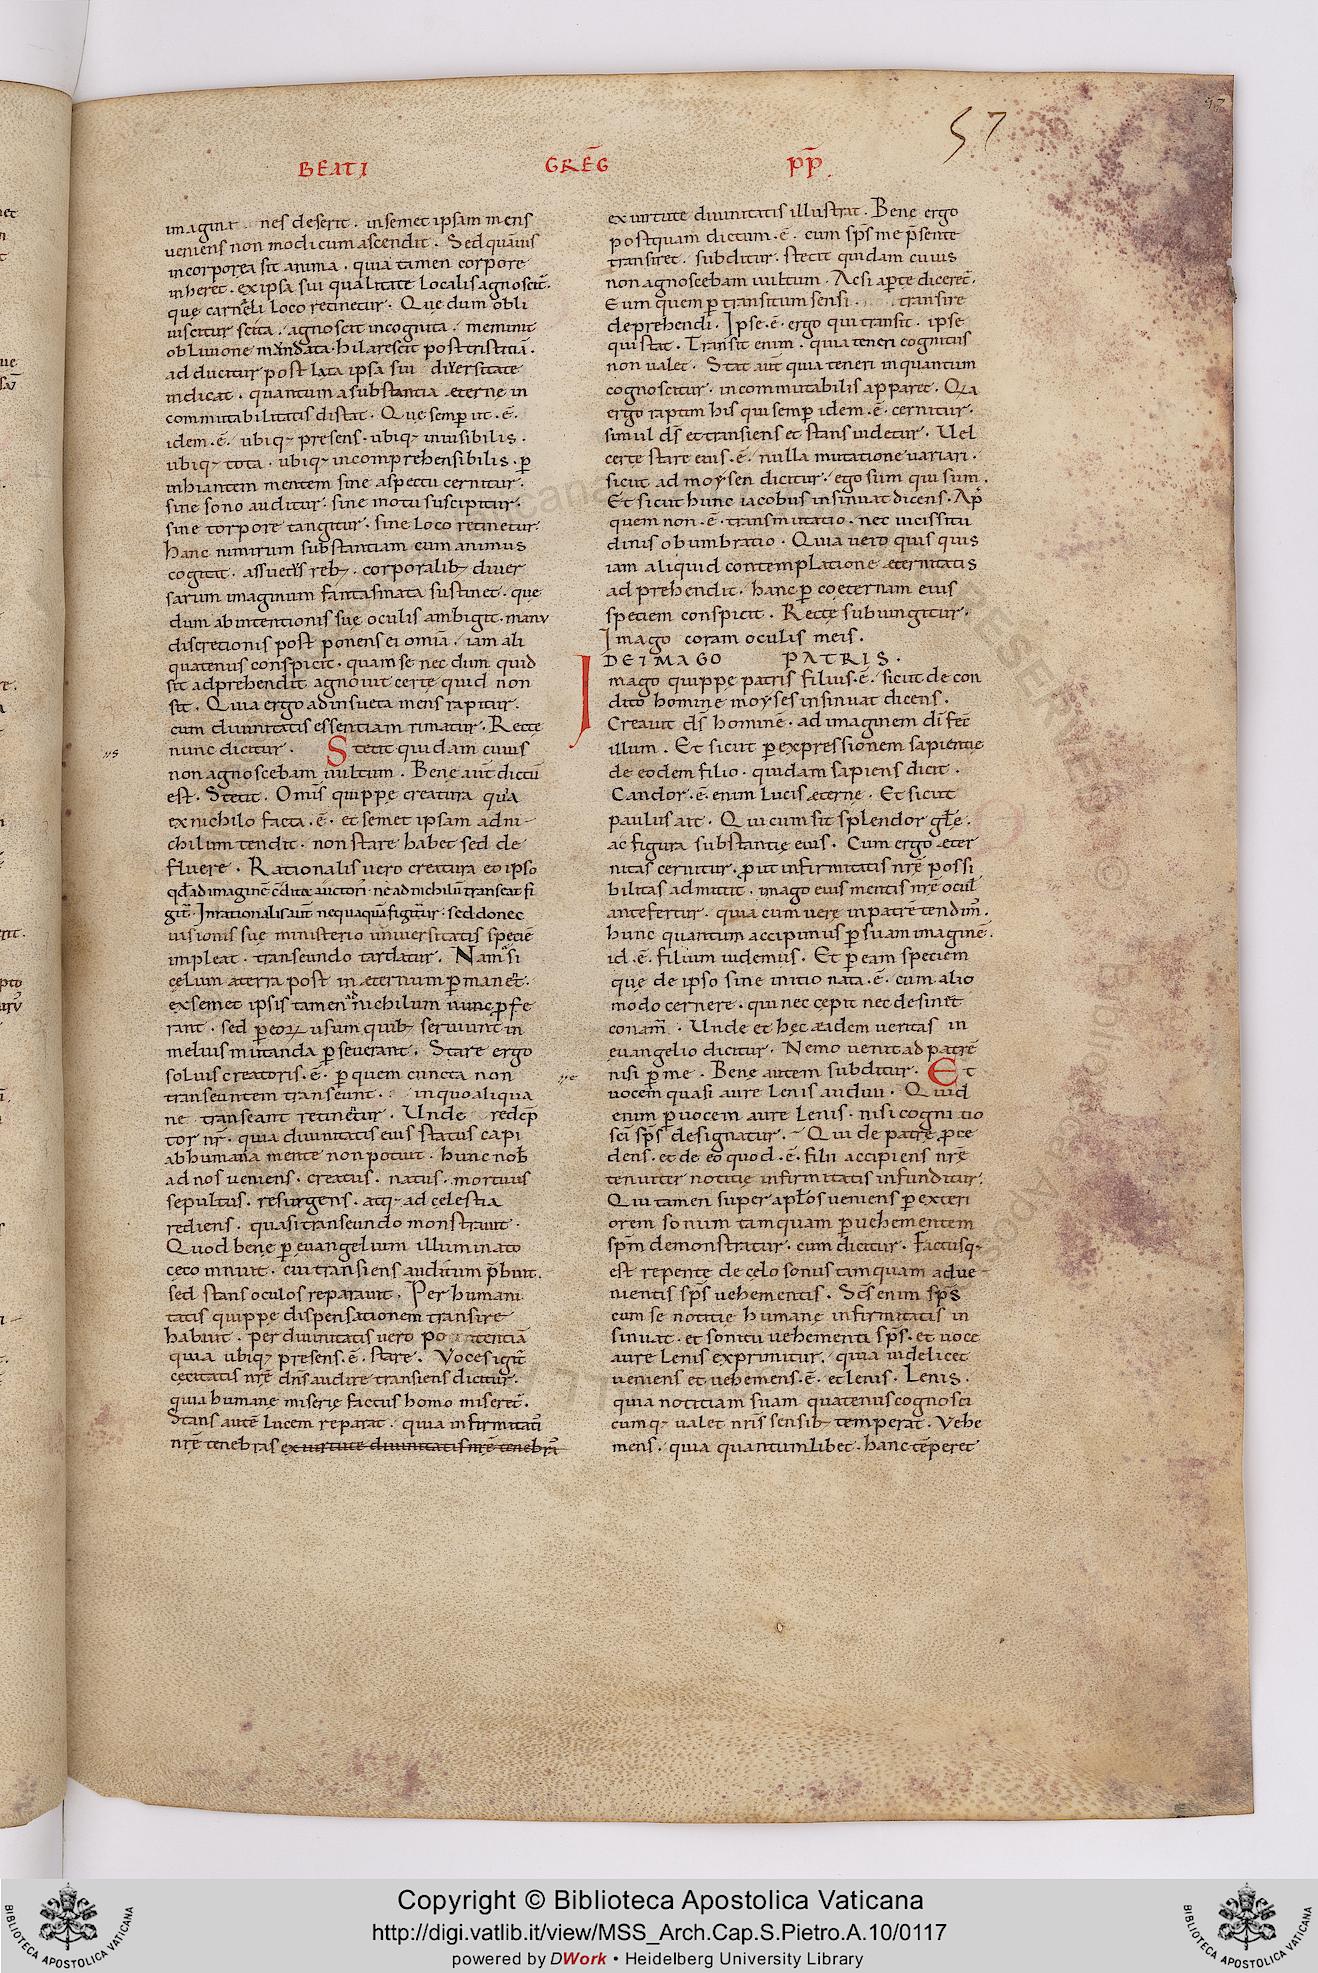 57
57
BEATI GRE͞G P͞P.
imaginat nes deserit . insemet ipsam mens
ueniens non modicum ascendit . Sed quãuis
incorporea sit anima . quia tamen corpore
inheret . ex ipsa sui qualitate localis agnoscit᷑.
quę carneli loco retinetur . Que dum obli
uiscitur scita . agnoscit incognita . meminit
obliuione mandata . hilarescit post tristitiã .
ad ducitur post lata ipsa sui diuersitate
indicat . quantum a substantia æterne in
commutabilitatis distat . Quę semꝑ ut . ē .
idem . ē . ubiqꝫ presens . ubiqꝫ inuisibilis .
ubiqꝫ tota . ubiqꝫ incomprehensibilis . ꝑ
inhiantem mentem sine aspectu cernitur .
sine sono auditur . sine motu suscipitur .
sine torpore tangitur . sine loco retinetur .
Hanc nimirum substantiam cum animus
cogitat . assuetis rebꝫ . corporalibꝫ diuer
sarum imaginum fantasmata sustinet . que
dum ab intentionis suę oculis ambigit . manu
discretionis post ponens ei omĩa . iam ali
quatenus conspicit . quam se nec dum quid
sit adprehendit agnouit certe quid non
sit . Quia ergo ad insueta mens rapitur .
cum diuinitatis essentiam rimatur . Recte
nunc dicitur . Stetit quidam cuius
non agnoscebam uultum . Bene aut̄ dictũ
est . Stetit . Omis̄ quippe creatura quia
ex nichilo facta . ē . et semet ipsam ad ni-
chilum tendit . non stare habet sed de
fluere . Rationalis uero creatura eo ipso
qđ ad imaginē cõdita auctori . ne ad nichilũ transeat fi
git᷑ . Inrationalis aut̄ nequaquã figitur . sed donec
uisionis sue ministerio uniuersitatis speciē
impleat . transeundo tardatur . Nam si
cęlum æterra post in æternum ꝑmanet .
ex semet ipsis tamen ad nichilum nunc ꝑfe
rant . sed ꝑ eoꝝ usum quibꝫ seruiunt in
melius mutanda ꝑseuerant . Stare ergo
solius creatoris . ē . ꝑ quem cuncta non
transeuntem transeunt . in quo aliqua
ne transeant retinetur . Unde redēp
tor nr̄ . quia diuinitatis eius status capi
ab humana mente non potuit . hunc nob̄
ad nos ueniens . creatus . natus . mortuus
sepultus . resurgens . atqꝫ ad celestia
rediens . quasi transeundo monstrauit .
Quod bene ꝑ euangelium illuminato
ceco innuit . cui transiens auditum p̄buit .
sed stans oculos reparauit . Per humani
tatis quippe dispensationem transire
habuit . per diuinitatis uero po tentiã
quia ubiqꝫ presens . ē . stare . Voces igit᷑
cęcitatis nr̄ę dn̄s audire transiens dicitur .
quia humanę miserię factus homo miseret᷑ .
Stans autē lucem reparat . quia infirmitati᷑
nr̄ę tenebras ex uirtute diuinitatis nr̄ę tenebrã
ex uirtute diuinitatis illustrat . Bene ergo
postquam dictum . ē . cum sp̄s me p̄sente
transiret . subditur . stetit quidam cuius
non agnoscebam uultum . Ac si aꝑte diceret᷑ .
Eum quem ꝑ transitum sensi transire
deprehendi . Ipse . ē . ergo qui transit . ipse
qui stat . Transit enim . quia teneri cognitus
non ualet . Stat aut̄ quia teneri inquantum
cognoscitur . incommutabilis apparet . Qia
ergo raptim his qui semꝑ idem . ē . cernitur .
simul ds̄ et transiens et stans uidetur . Uel
certe stare eius . ē . nulla mutatione uariari .
sicut ad moysen dicitur . ego sum qui sum .
Et sicut hunc iacobus insinuat dicens . Ap̄
quem non . ē . transmutatio . nec uicissitu
dinis obumbratio . Quia uero quis quis
iam aliquid contemplatione æternitatis
adprehendit . hanc ꝑ coęternam eius
speciem conspicit . Recte subiungitur .
Imago coram oculis meis .
DEIMAGO PATRIS .
Imago quippe patris filius . ē . sicut de con
dito homine moyses insinuat dicens .
Creauit ds̄ hominē . ad imaginem dī fec̄
illum . Et sicut ꝑ expressionem sapientię
de eodem filio . quidam sapiens dicit .
Candor . ē . enim lucis æternę . Et sicut
paulus ait . Qui cum sit splendor gl̄ę .
ac figura substantię eius . Cum ergo æter
nitas cernitur . ꝓut infirmitatis nr̄ę possi
bilitas admittit . imago eius mentis nr̄ę ocul̄
antefertur . quia cum uere in patrē tendim᷑ .
hunc quantum accipimus ꝑ suam imaginē .
id . ē . filium uidemus . Et ꝑ eam speciem
quę de ipso sine initio nata . ē . eum alio
modo cernere . qui nec cepit nec desinet
conam᷑ . Unde et hęc eadem ueritas in
euangelio dicitur . Nemo uenit ad patrē
nisi ꝑ me . Bene autem subditur . Et
uocem quasi aure lenis audiui . Quid
enim ꝑ uocem aure lenis . nisi cogni tio
sci sp̄s designatur . Qui de patre ꝓce
dens . et de eo quod . ē . filii accipiens nr̄ę
tenuiter notitię infirmitatis infunditur .
Qui tamen super apl̄os ueniens ꝑ exteri
orem sonum tamquam ꝑ uehementem
sp̄m demonstratur . cum dicitur . Factusqꝫ
est repente de celo sonus tamquam adue-
nientis sp̄s uehementis . Sc̄s enim sp̄s
cum se notitię humanę infirmitatis in
sinuat . et sonitu uehementi sp̄s . et uoce
aure lenis exprimitur . quia uidelicet
ueniens et uehemens . ē . et lenis . Lenis .
quia notitiam suam quatenus cognosci
cumqꝫ ualet nr̄is sensibꝫ temperat . Vehe
mens . quia quantumlibet . hanc tēperet
Copyright © Biblioteca Apostolica Vaticana
http://digi.vatlib.it/view/MSS_Arch.Cap.S.Pietro.A.10/0117
powered by DWork • Heidelberg University Library
BIBLIOTECA APOSTOLICA VATICANA
BIBLIOTECA APOSTOLICA VATICANA